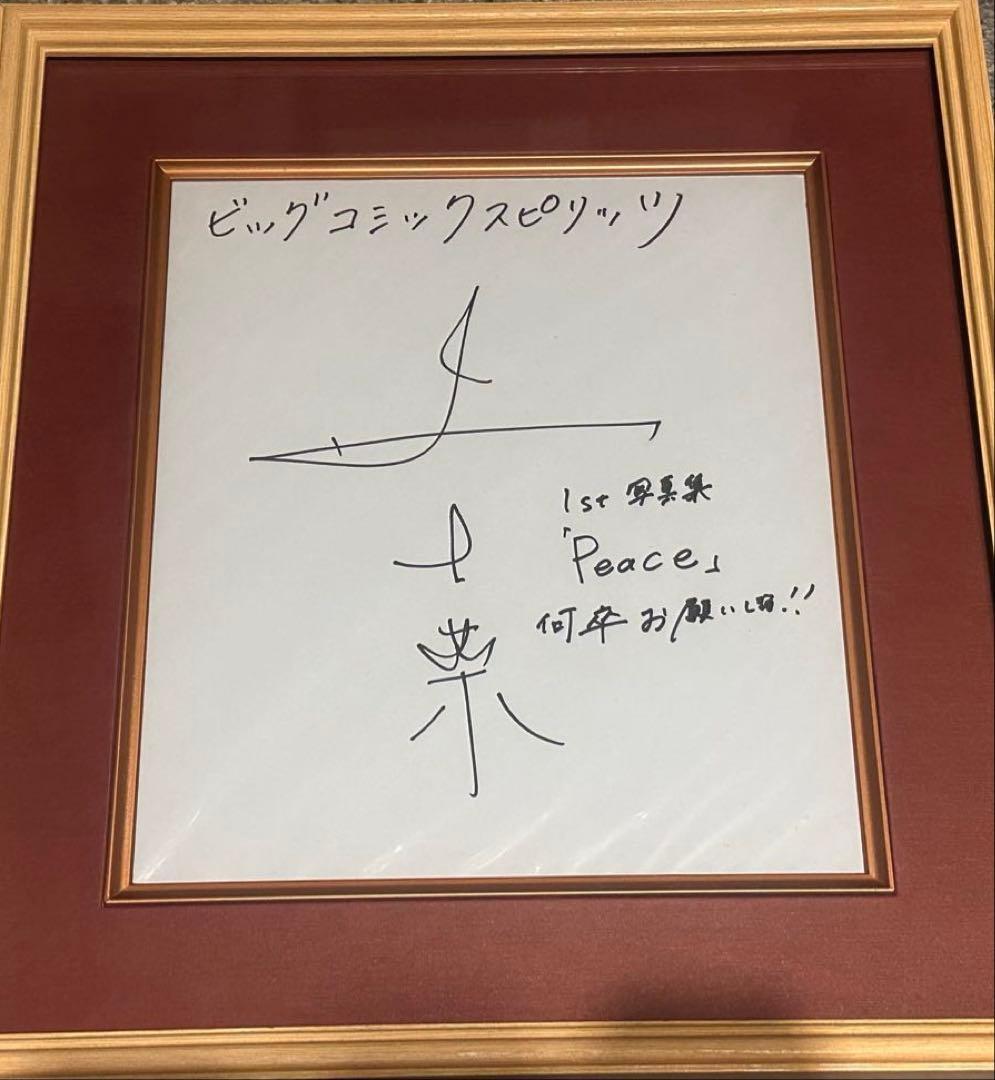 ビッグコミックスピリッツ
1st 写真集
「Peace」
何卒お願いし〼!!